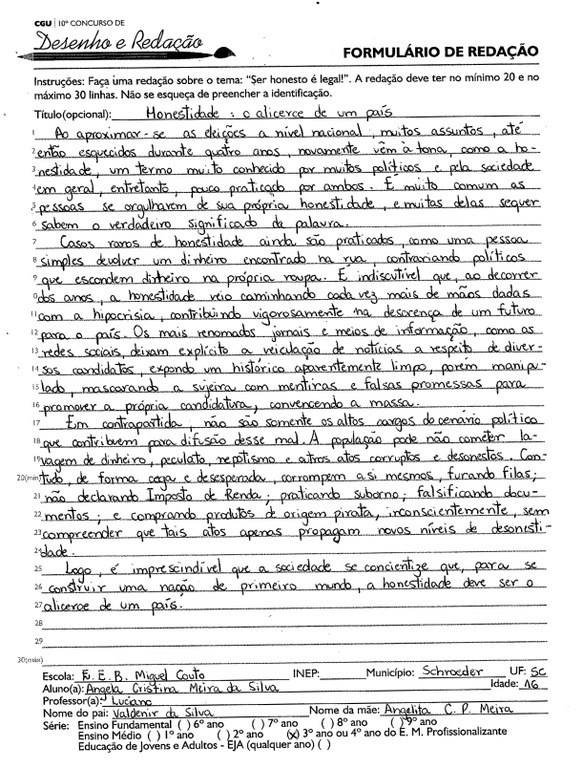 CGU | 10º CONCURSO DE
Desenho e Redação
FORMULÁRIO DE REDAÇÃO
Instruções: Faça uma redação sobre o tema: "Ser honesto é legal!". A redação deve ter no mínimo 20 e no
máximo 30 linhas. Não se esqueça de preencher a identificação.
Título(opcional): Honestidade: o alicerce de um país
1 Ao aproximar-se as eleições a nível nacional, muitos assuntos, até
2 então esquecidos durante quatro anos, novamente vêm à tona, como a ho-
3 nestidade, um termo muito conhecido por muitos políticos e pela sociedade
4 em geral, entretanto, pouco praticado por ambos. É muito comum as
5 pessoas se orgulharem de sua própria honestidade, e muitas delas sequer
6 sabem o verdadeiro significado da palavra.
7 Casos raros de honestidade ainda são praticados, como uma pessoa
8 simples devolver um dinheiro encontrado na rua, contrariando políticos
9 que escondem dinheiro na própria roupa. É indiscutível que, ao decorrer
10 dos anos, a honestidade veio caminhando cada vez mais de mãos dadas
11 com a hipocrisia, contribuindo vigorosamente na descrença de um futuro
12 para o país. Os mais renomados jornais e meios de informação, como as
13 redes sociais, deixam explícito a veiculação de notícias a respeito de diver-
14 sos candidatos, expondo um histórico aparentemente limpo, porém manipu-
15 lado, mascarando a sujeira com mentiras e falsas promessas para
16 promover a própria candidatura, convencendo a massa.
17 Em contrapartida, não são somente os altos cargos do cenário político
18 que contribuem para difusão desse mal. A população pode não cometer la-
19 vagem de dinheiro, peculato, nepotismo e outros atos corruptos e desonestos. Con-
20(min) tudo, de forma cega e desesperada, corrompem a si mesmos, furando filas;
21 não declarando Imposto de Renda; praticando suborno; falsificando docu-
22 mentos; e comprando produtos de origem pirata, inconscientemente, sem
23 compreender que tais atos apenas propagam novos níveis de desonesti-
24 dade.
25 Logo, é imprescindível que a sociedade se concientize que, para se
26 construir uma nação de primeiro mundo, a honestidade deve ser o
27 alicerce de um país.
28
29
30(máx)
Escola: E. E. B. Miguel Couto INEP: Município: Schroeder UF: SC
Aluno(a): Angela Cristina Meira da Silva Idade: 16
Professor(a): Luciano
Nome do pai: Valdenir da Silva Nome da mãe: Angelita C. P. Meira
Série: Ensino Fundamental ( ) 6º ano ( ) 7º ano ( ) 8º ano ( ) 9º ano
Ensino Médio ( ) 1º ano ( ) 2º ano (x) 3º ano ou 4º ano do E. M. Profissionalizante
Educação de Jovens e Adultos - EJA (qualquer ano) ( )